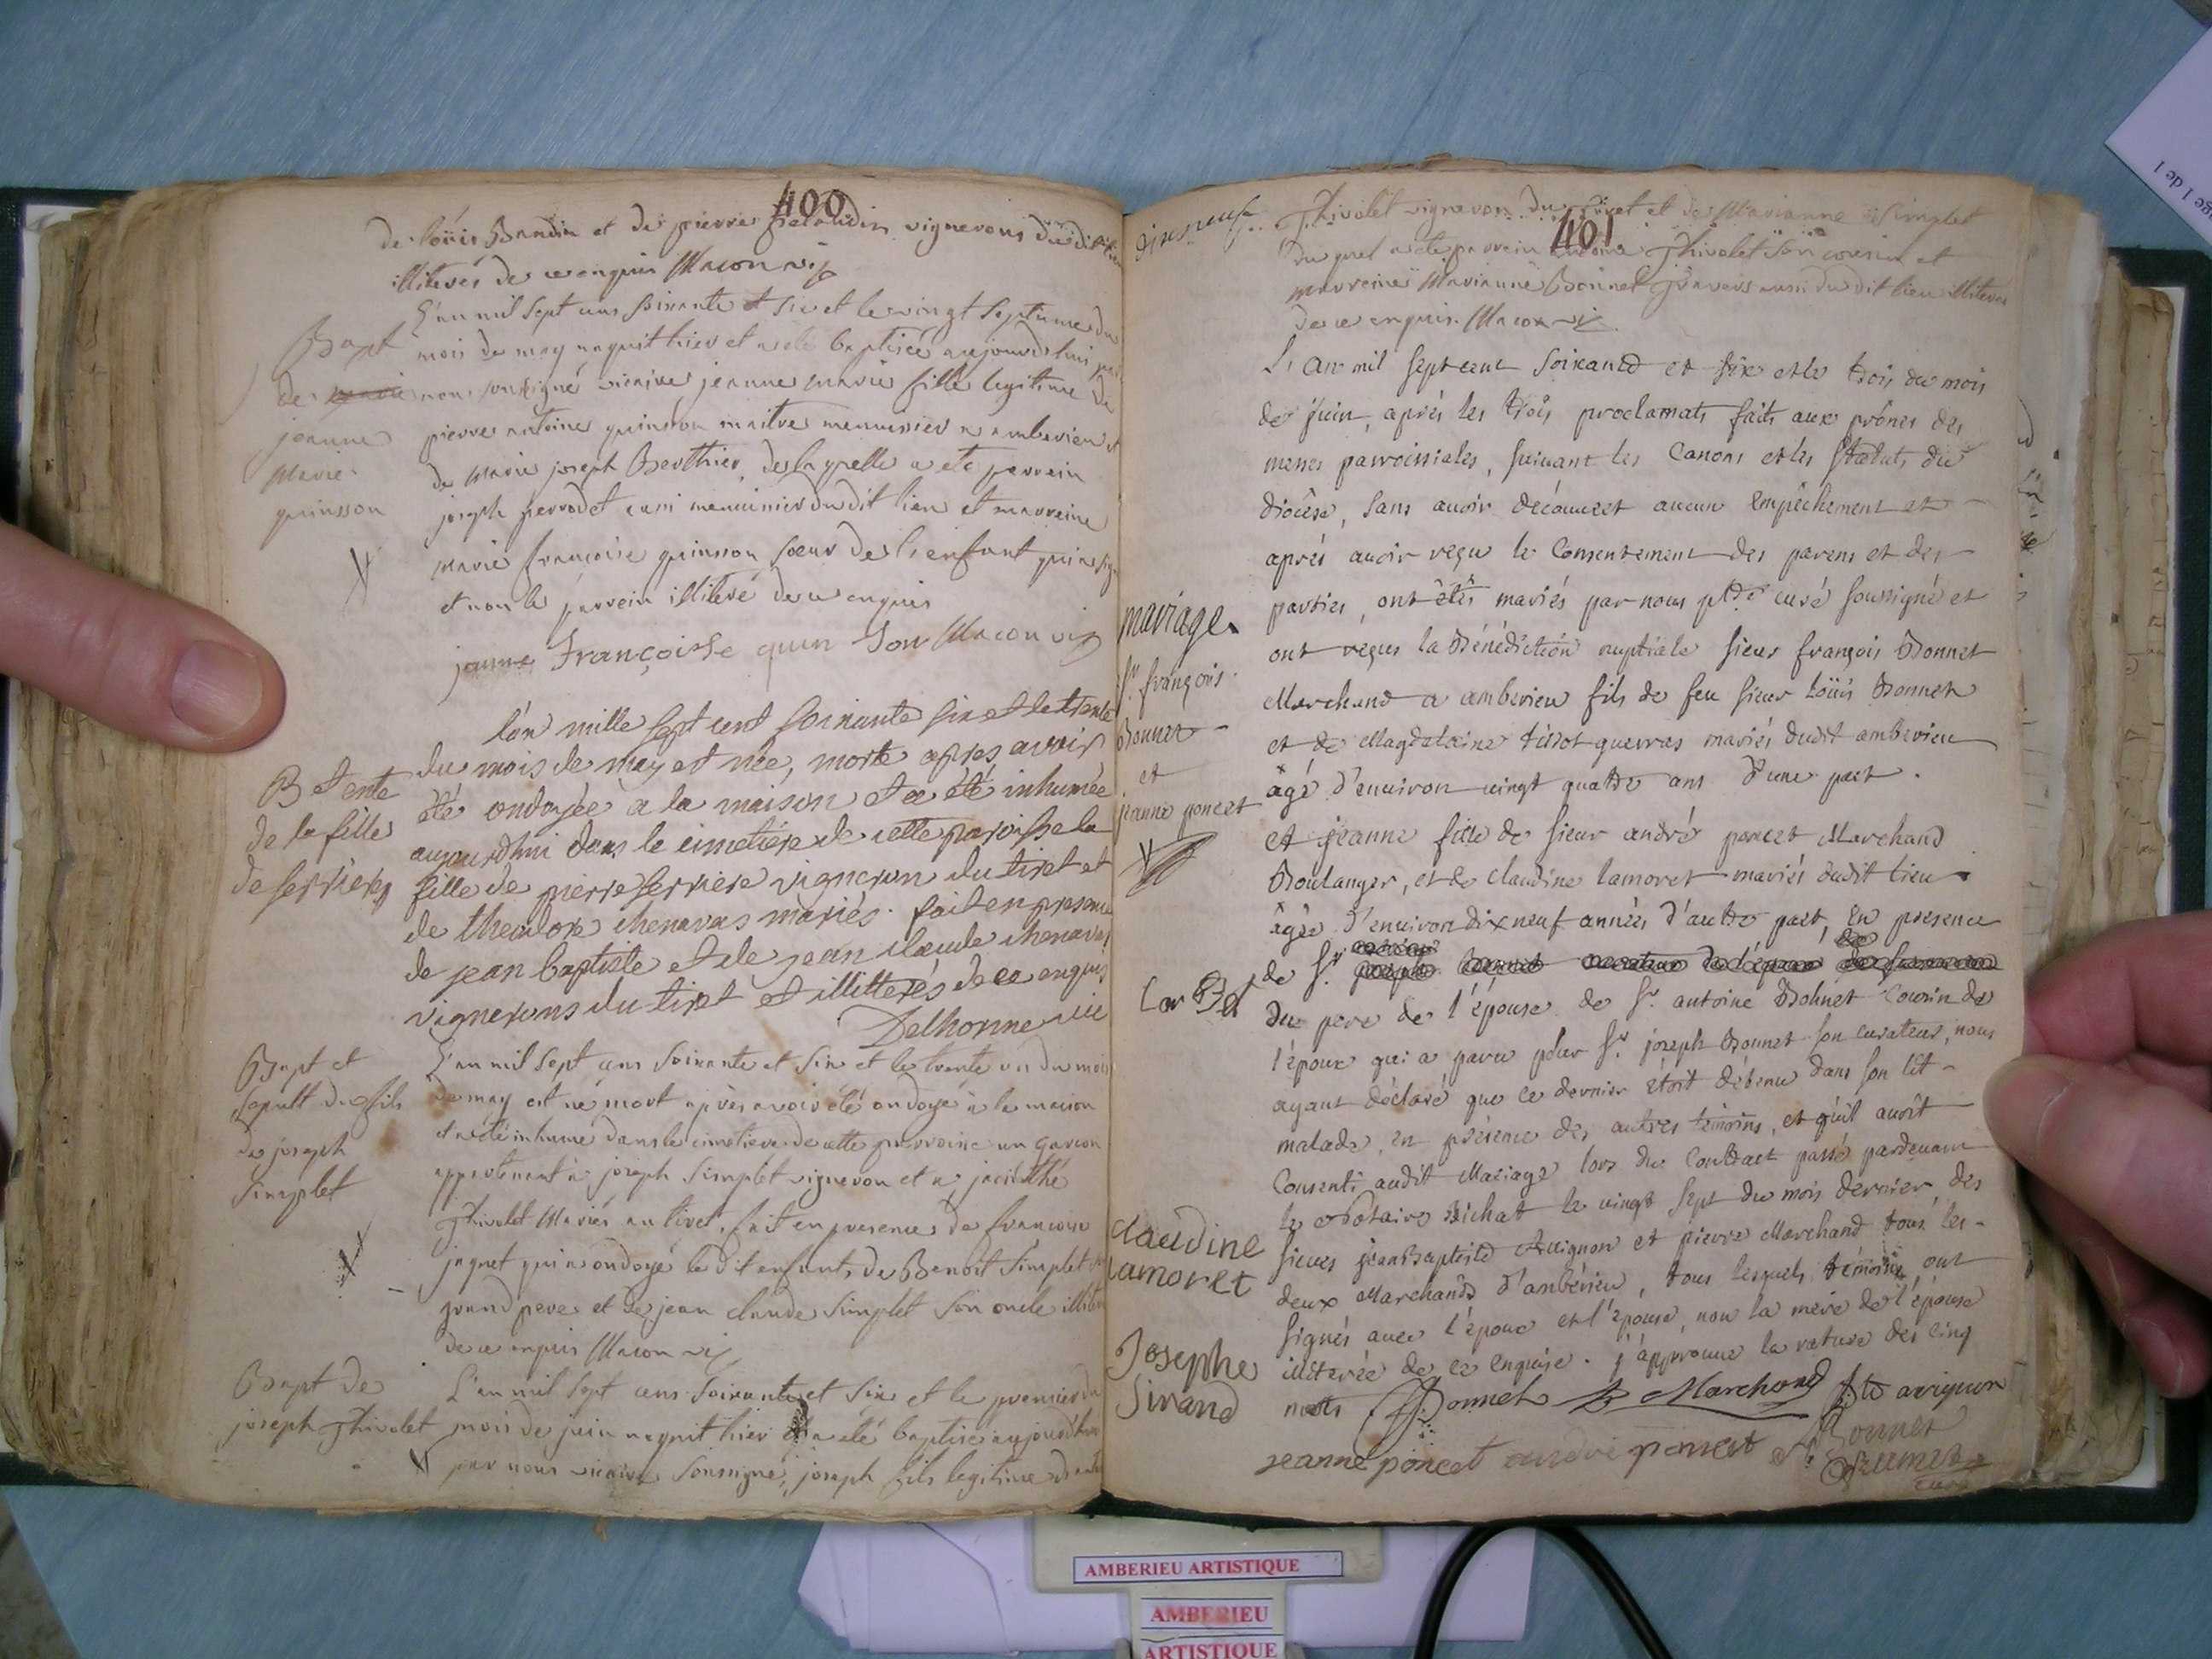 400
de loüis Baudin et de pierre vignerons dudit
illiterés de ce enquis Macon vic
Bapt
de
jeanne
Marie
quinsson
L'an mil sept cens soixante et six et le vingt septieme du
mois de may naquit hier et a eté baptisée aujourdhui par
nous soussigné vicaire jeanne marie fille legitime de
pierre antoine quinson maitre menuisier a amberieu et
de marie joseph Berthier, de laquelle a eté parrein
joseph perrodet aussi menuisier dudit lieu et marreine
marie françoise quinson sœur de l'enfant qui a sig
et non le parrein illiteré de ce enquis
jeanne Françoisse quin son Macon vic
B et ente
de la fille
de ferriere
l'an mille sept cent soixante six et le trente
du mois de may est née, morte apres avoir
été ondoyée a la maison et a été inhumée
aujourdhui dans le cimetière de cette paroisse la
fille de pierre ferriere vigneron du tiret et
de theodore chenavas mariés. fait en presence
de jean baptiste et de jean claude chenavas
vignerons du tiret et illitterés de ce enquis
Delhorme vic
Bapt et
sepult du fils
de joseph
simplet
L'an mil sept cens soixante et six et le trente un du mois
de may est né mort après avoir été ondoyé à la maison
et a eté inhumé dans le cimetiere de cette parroisse un garcon
appartenant à joseph simplet vigneron et a jacinthe
Thivolet Mariés au tiret. fait en presence de francoise
jaquet qui a ondoyé le dit enfant, de Benoit simplet son
grand pere et de jean claude simplet son oncle illiter
de ce enquis Macon vic
Bapt de
joseph Thivolet
L'an mil sept cens soixante et six et le premier du
mois de juin naquit hier et a eté baptisé aujourdhui
par nous vicaire soussigné, joseph fils legitime d
401
Thivolet vigneron du tiret et de Marianne Simplet
du quel a eté parrein antoine Thivolet son cousin et
marreine Marianne Bonnet aussi du dit lieu illiteres
de ce enquis. Macon vic
mariage
sr. françois
Bonnet
et
jeanne poncet
L'an mil sept cent soixante et six et le trois du mois
de juin, aprés les trois proclamats faits aux prônes des
messes parroissiales, suivant les Canons et les Statuts du
diocèse, sans avoir découvert aucun Empêchement et
aprés avoir reçu le Consentement des parens et des
parties, ont étés mariés par nous ptre curé soussigné et
ont reçus la Bénédiction nuptiale sieur françois Bonnet
Marchand a amberieu fils de feu sieur Loüis Bonnet
et de Magdelaine tissot guerras mariés dudit amberieu
âgé d'environ vingt quatre ans d'une part.
et jeanne fille de sieur andré poncet Marchand
Boulanger, et de claudine lamoret mariés dudit lieu
âgée d'environ dix neuf années d'autre part, En presence
de Sr.
du pere de l'épouse de Sr. antoine Bonnet Cousin de
l'époux qui a paru pour Sr. joseph Bonnet son curateur, nous
ayant déclaré que ce dernier étoit détenu dans son lit
malade, en présence des autres témoins, et qu'il avoit
Consenti audit Mariage lors du Contract passé pardevant
le Notaire Bichat le vingt sept du mois dernier, des
sieurs jean Baptiste Avignon et pierre Marchand tous les
deux Marchands d'ambérieu, tous lesquels témoins ont
signés avec l'époux et l'épouse, non la mere de l'épouse
illiterée de ce Enquise. j'approuve la rature des cinq
mots
claudine
lamoret
Josephe
Sirand
Bonnet P Marchand Bte avignon
Bonnet
jeanne poncet andré poncet
curé
AMBERIEU ARTISTIQUE
AMBERIEU
ARTISTIQUE